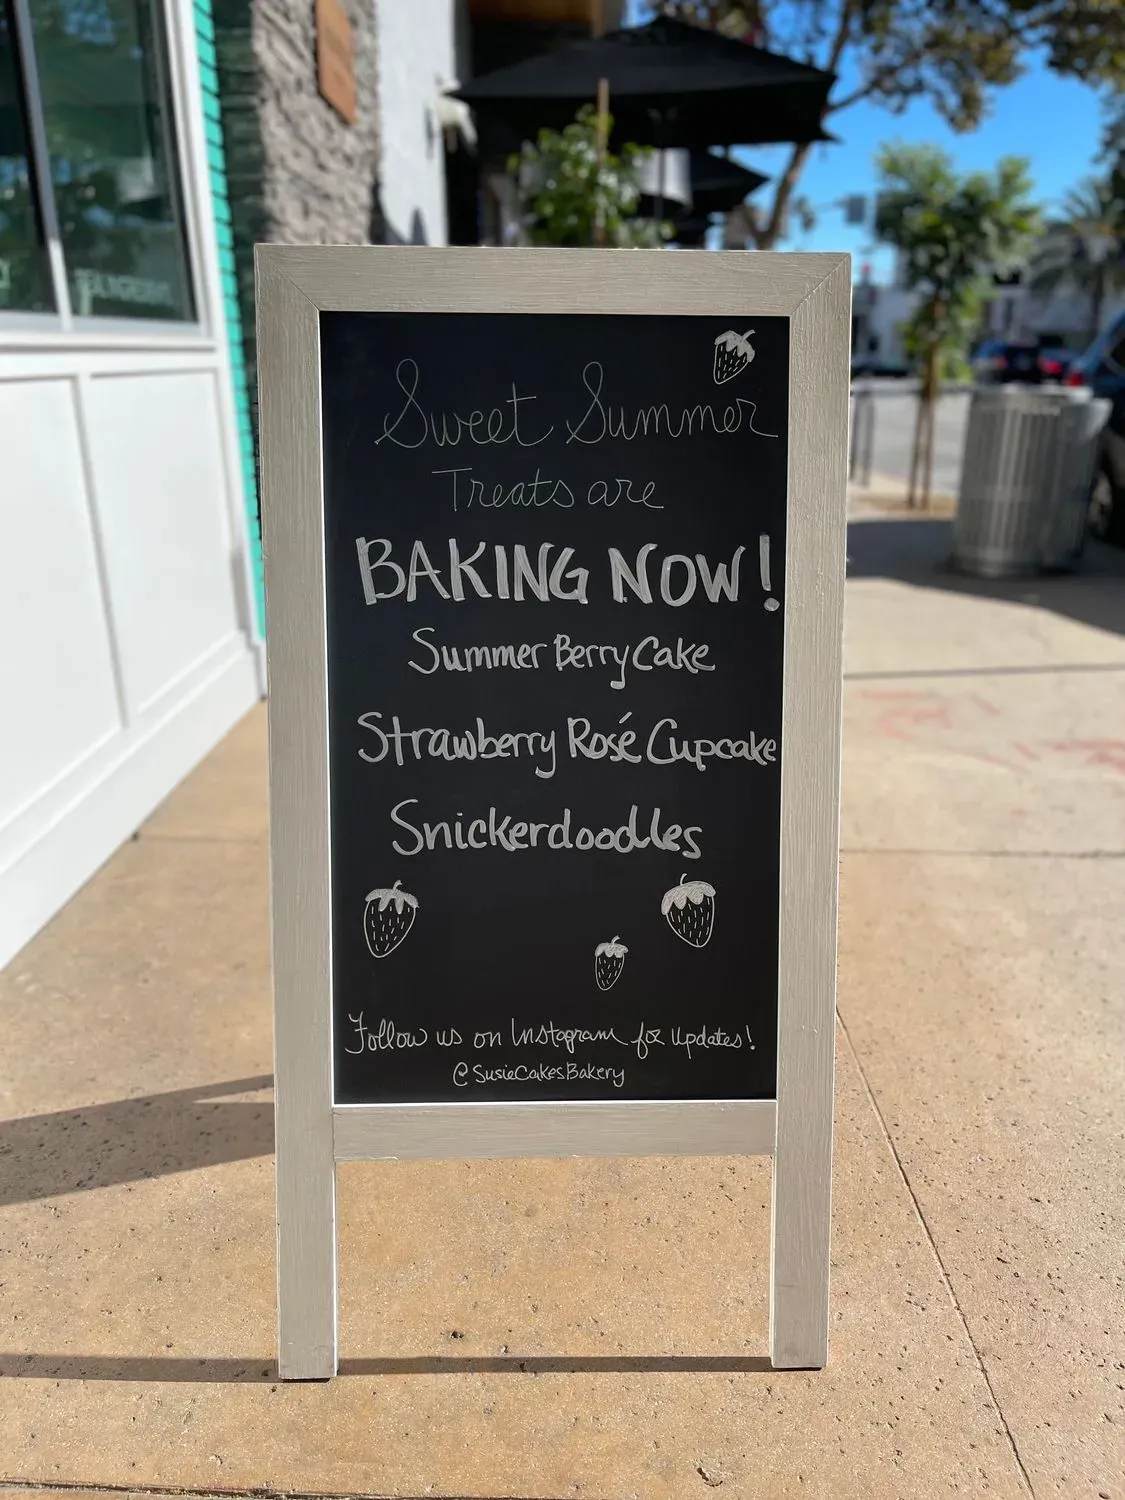 Sweet Summer
Treats are
BAKING NOW!
Summer Berry Cake
Strawberry Rosé Cupcake
Snickerdoodles
Follow us on Instagram for updates!
@SusieCakesBakery